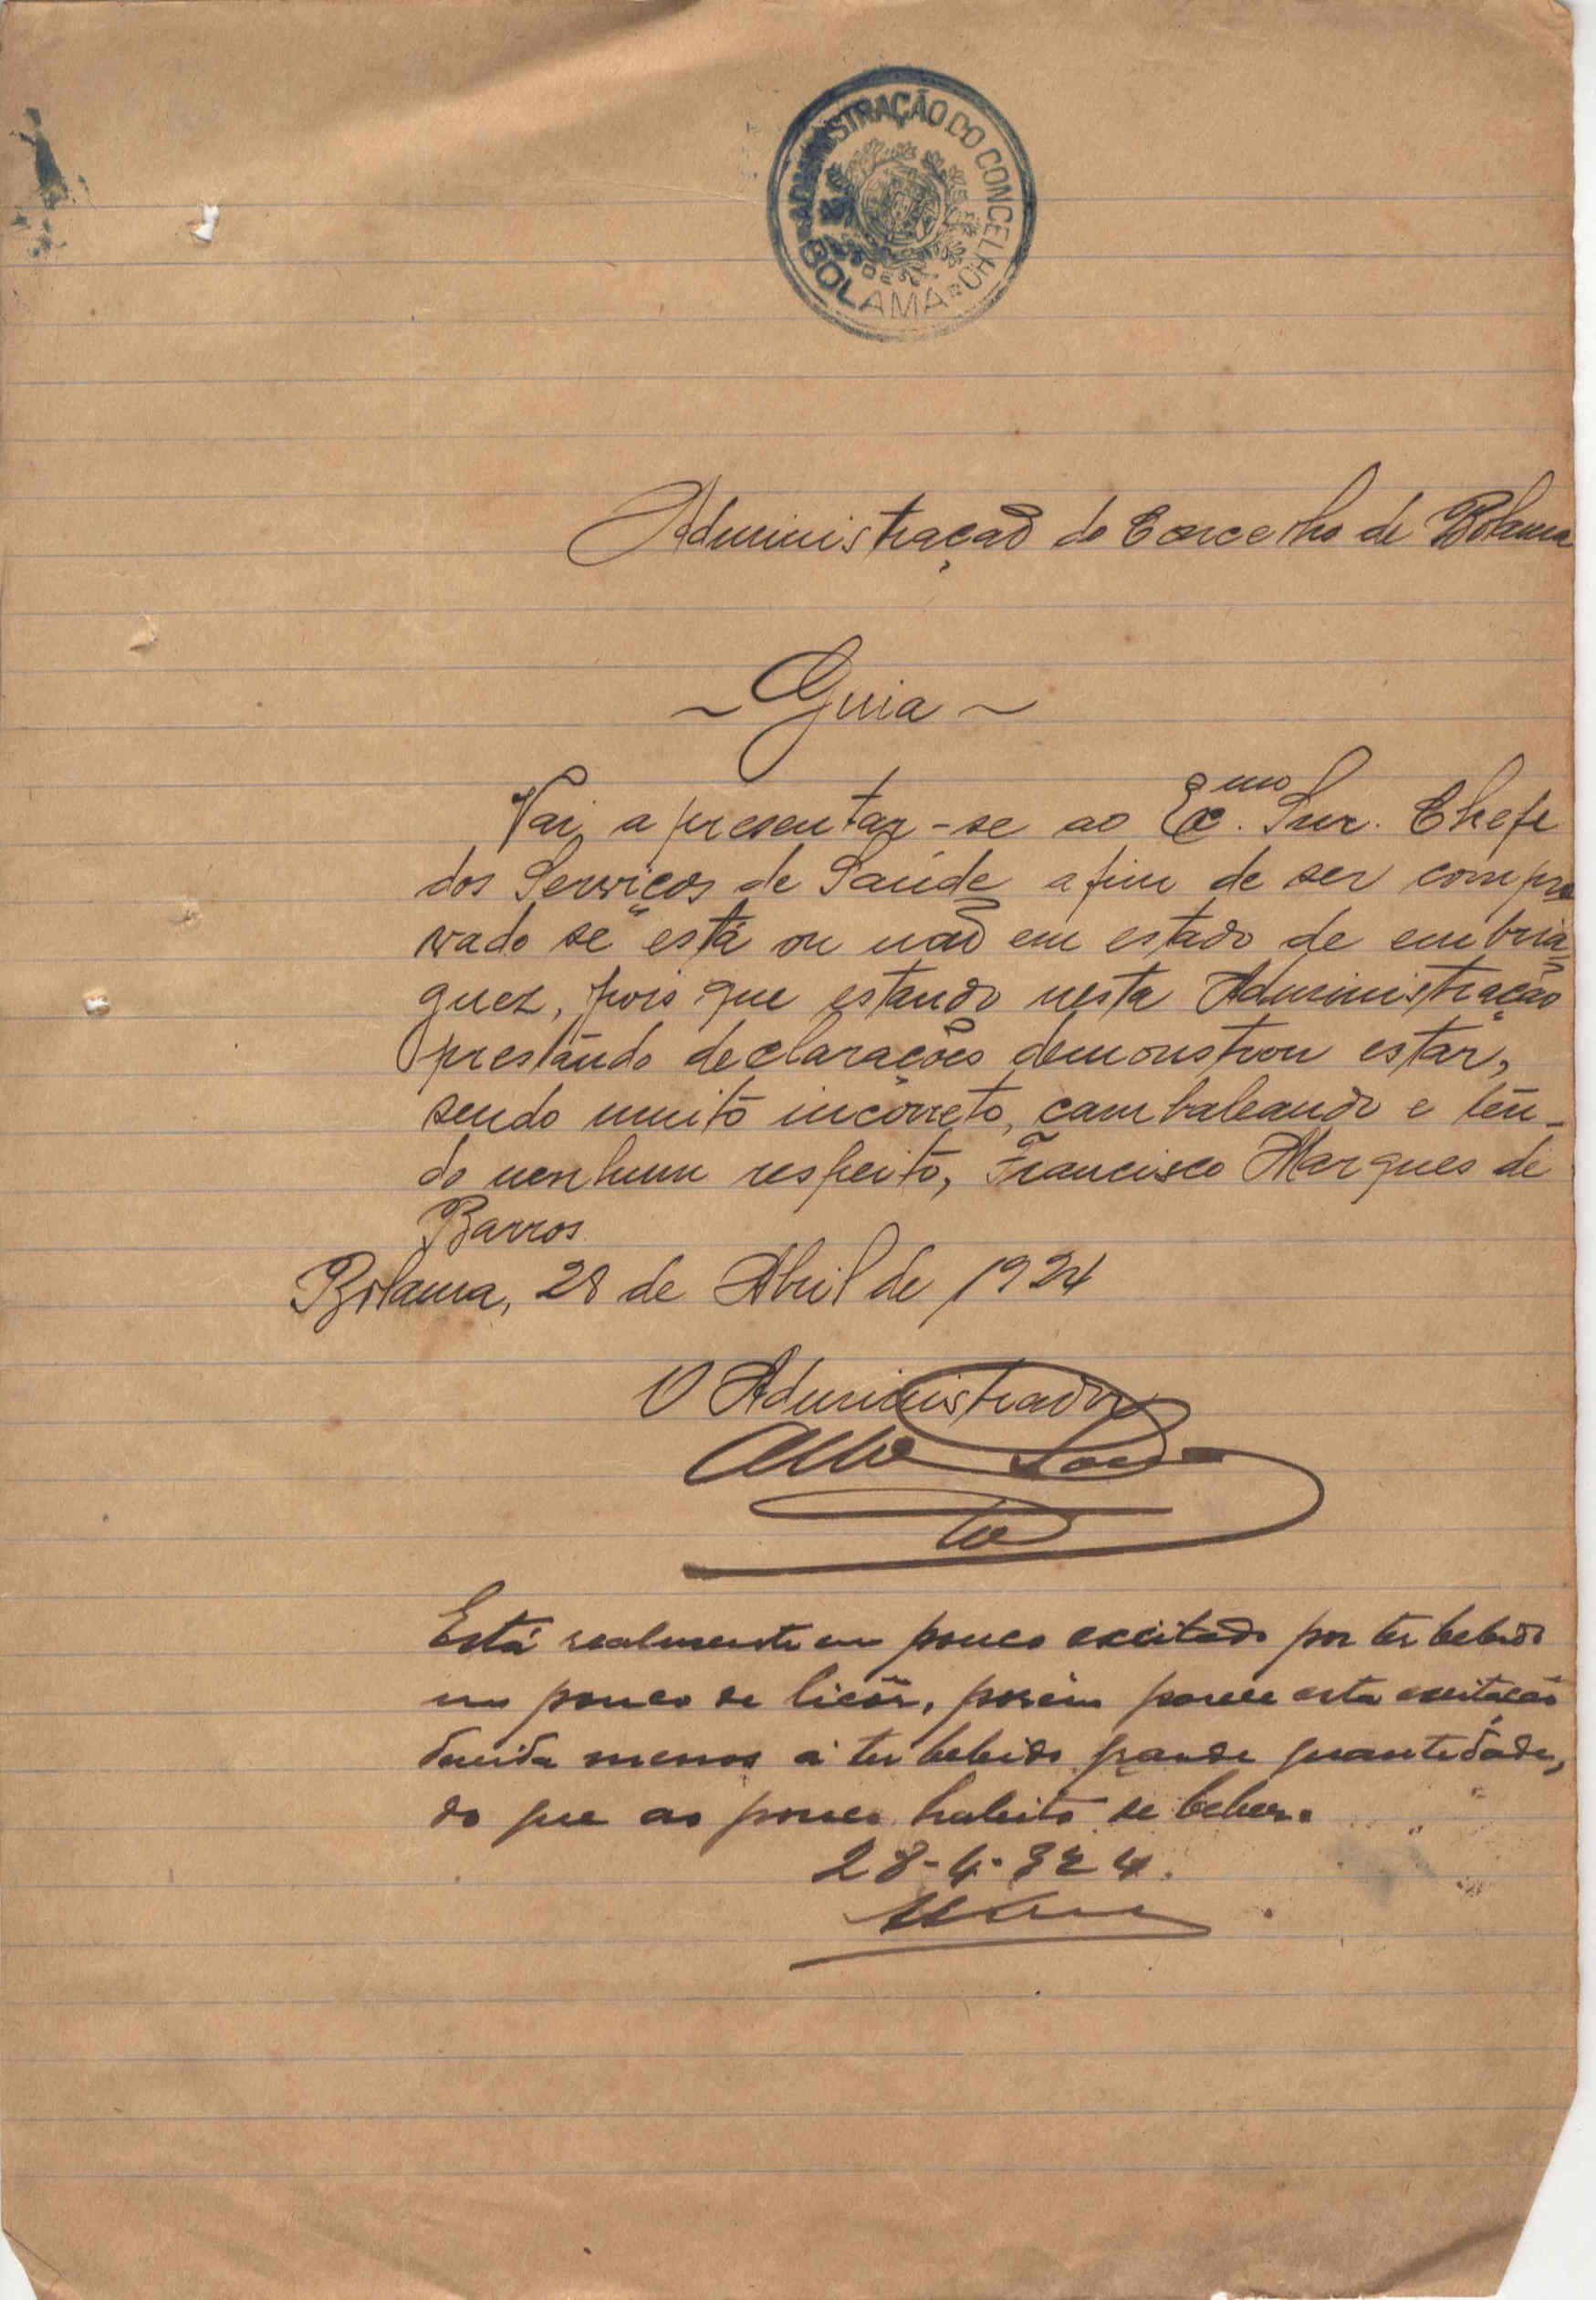 ADMINISTRAÇÃO DO CONCELHO
BOLAMA
Administração do Concelho de Bolama
~ Guia ~
Vai apresentar-se ao Exc.mo Snr. Chefe
dos Serviços de Saúde afim de ser compro
vado se está ou não em estado de embria
guez, pois que estando nesta Administração
prestando declarações demonstrou estar,
sendo muito incorreto, cambaleando e ten-
do nenhum respeito, Francisco Marques de
Barros
Bolama, 28 de Abril de 1924
O Administrador
Está realmente um pouco excitado por ter bebido
um pouco de licôr, porém parece esta excitação
devida menos a ter bebido grande quantidade,
do que ao pouco habito de beber.
28-4-924.